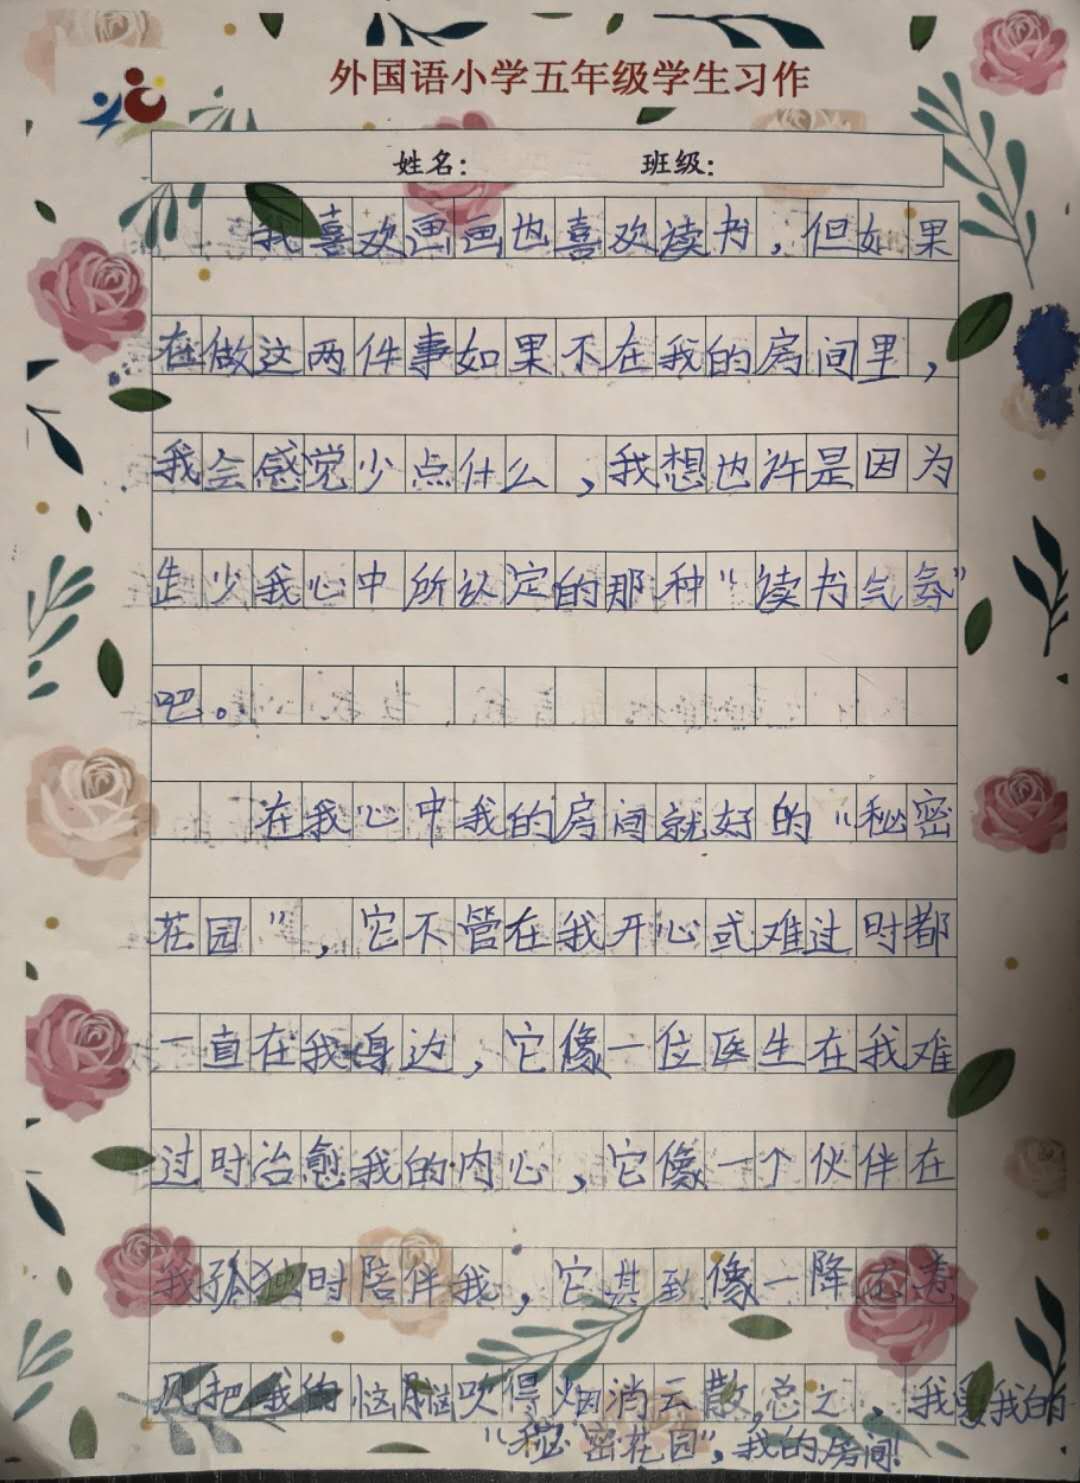 外国语小学五年级学生习作
姓名： 班级：
我喜欢画画也喜欢读书，但如果
在做这两件事如果不在我的房间里，
我会感觉少点什么，我想也许是因为
少我心中所认定的那种“读书气氛”
吧。
在我心中我的房间就好的“秘密
花园”，它不管在我开心或难过时都
一直在我身边，它像一位医生在我难
过时治愈我的内心，它像一个伙伴在
我孤独时陪伴我，它甚到像一降
把我的恼吹得烟消云散，总之，我爱我的
“秘密花园”，我的房间！